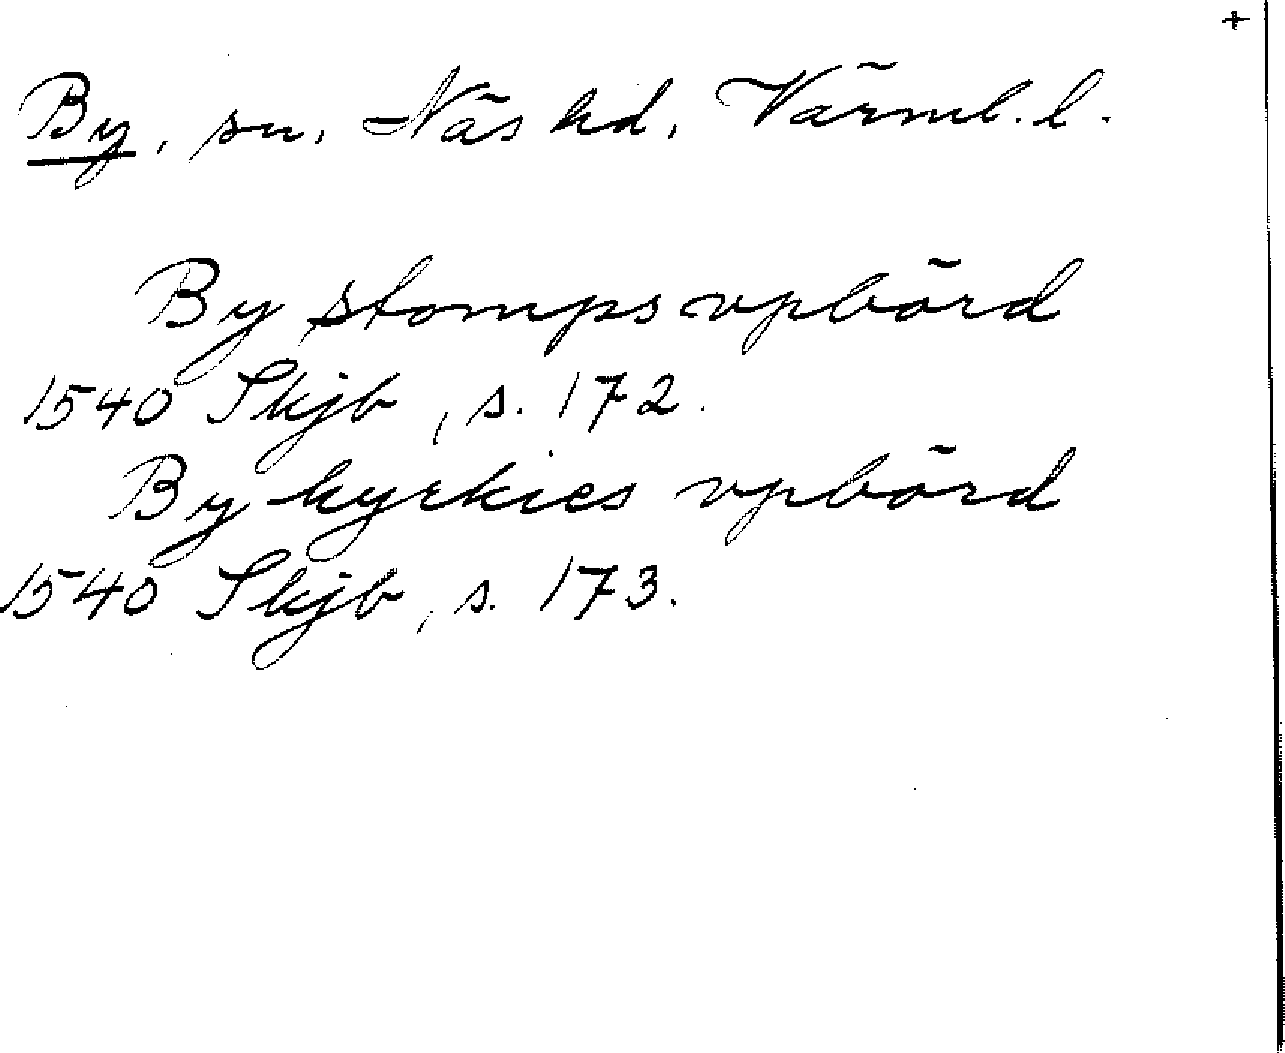 +
By, sn, Näs hd, Värml. l.
By stomps vpbörd
1540 Skjb, s. 172.
By kyrkies vpbörd
1540 Skjb, s. 173.